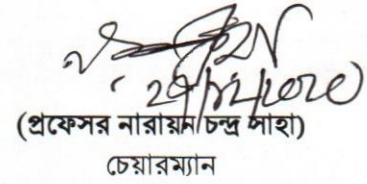 ২৭/১২/২০২০
(প্রফেসর নারায়ন চন্দ্র সাহা)
চেয়ারম্যান